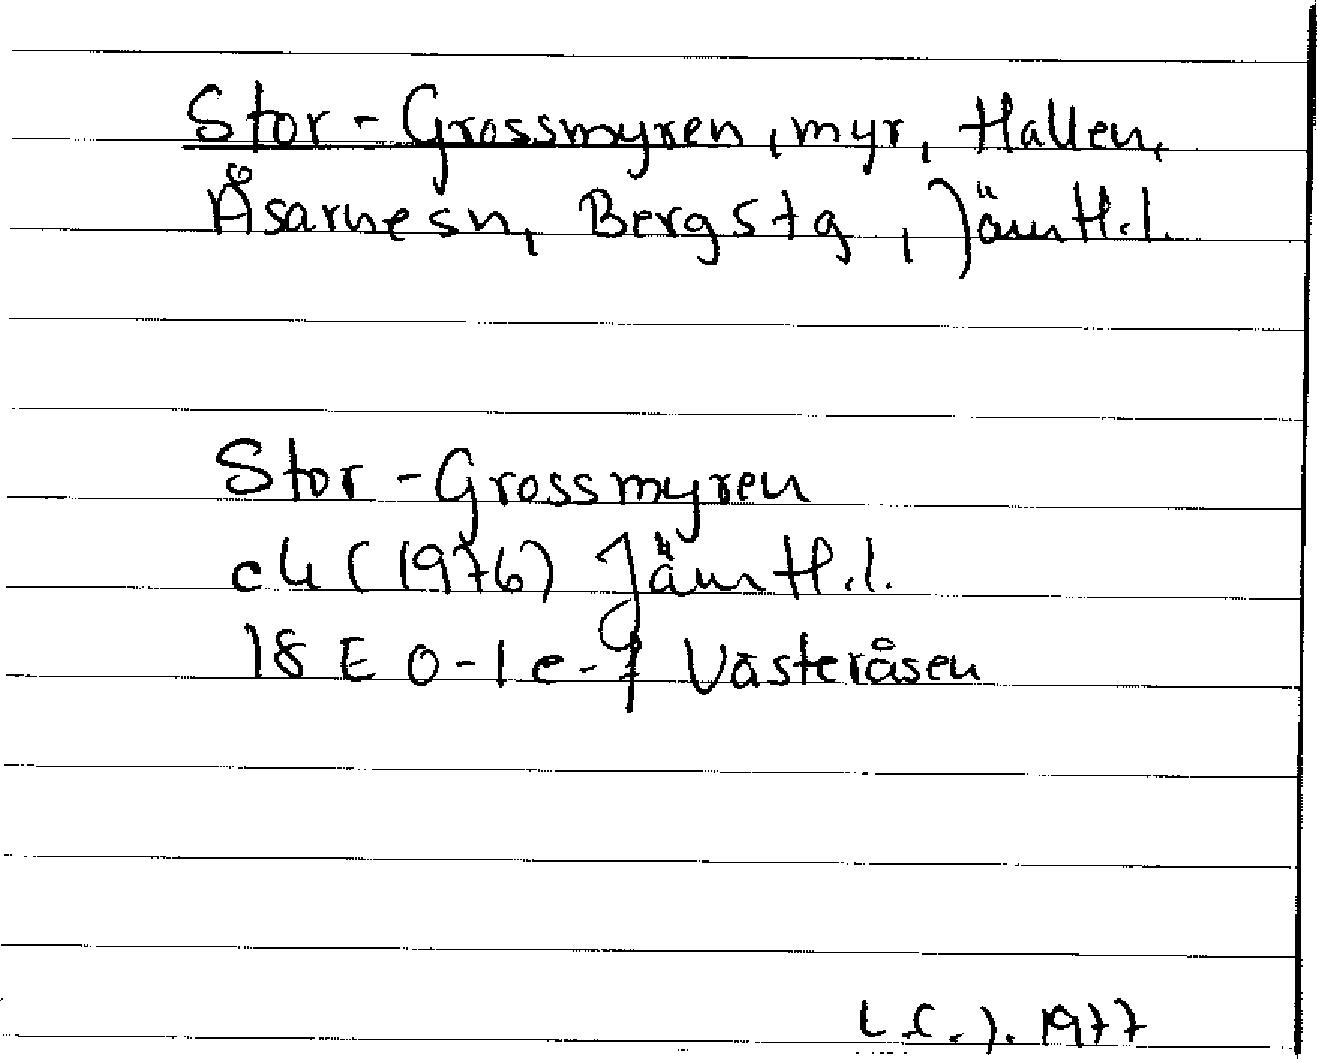 Stor-Grossmyren, myr, Hallen,
Åsarnesn, Bergs tg, Jämtl.l.
Stor-Grossmyren
ek (1976) Jämtl.l.
18 E 0-1 e-f Västeråsen
L.C.J. 1977